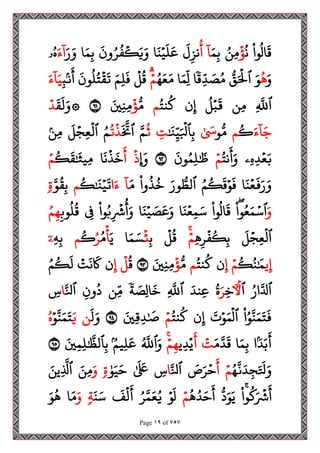 قَالُوا۟ نُؤْمِنُ بِمَآ أُنزِلَ عَلَيْنَا وَيَكْفُرُونَ بِمَا وَرَآءَهُۥ
وَهُوَ ٱلْحَقُّ مُصَدِّقًا لِّمَا مَعَهُمْ ۗ قُلْ فَلِمَ تَقْتُلُونَ أَنۢبِيَآءَ
ٱللَّهِ مِن قَبْلُ إِن كُنتُم مُّؤْمِنِينَ ٩١ ۞ وَلَقَدْ
جَآءَكُم مُّوسَىٰ بِٱلْبَيِّنَـٰتِ ثُمَّ ٱتَّخَذْتُمُ ٱلْعِجْلَ مِنۢ
بَعْدِهِۦ وَأَنتُمْ ظَـٰلِمُونَ ٩٢ وَإِذْ أَخَذْنَا مِيثَـٰقَكُمْ
وَرَفَعْنَا فَوْقَكُمُ ٱلطُّورَ خُذُوا۟ مَآ ءَاتَيْنَـٰكُم بِقُوَّةٍ
وَٱسْمَعُوا۟ ۖ قَالُوا۟ سَمِعْنَا وَعَصَيْنَا وَأُشْرِبُوا۟ فِى قُلُوبِهِمُ
ٱلْعِجْلَ بِكُفْرِهِمْ ۚ قُلْ بِئْسَمَا يَأْمُرُكُم بِهِۦٓ
إِيمَـٰنُكُمْ إِن كُنتُم مُّؤْمِنِينَ ٩٣ قُلْ إِن كَانَتْ لَكُمُ
ٱلدَّارُ ٱلْـَٔاخِرَةُ عِندَ ٱللَّهِ خَالِصَةً مِّن دُونِ ٱلنَّاسِ
فَتَمَنَّوُا۟ ٱلْمَوْتَ إِن كُنتُمْ صَـٰدِقِينَ ٩٤ وَلَن يَتَمَنَّوْهُ
أَبَدًۢا بِمَا قَدَّمَتْ أَيْدِيهِمْ ۗ وَٱللَّهُ عَلِيمٌۢ بِٱلظَّـٰلِمِينَ ٩٥
وَلَتَجِدَنَّهُمْ أَحْرَصَ ٱلنَّاسِ عَلَىٰ حَيَوٰةٍ وَمِنَ ٱلَّذِينَ
أَشْرَكُوا۟ ۚ يَوَدُّ أَحَدُهُمْ لَوْ يُعَمَّرُ أَلْفَ سَنَةٍ وَمَا هُوَ
Page ١٩ of ٧٥٧